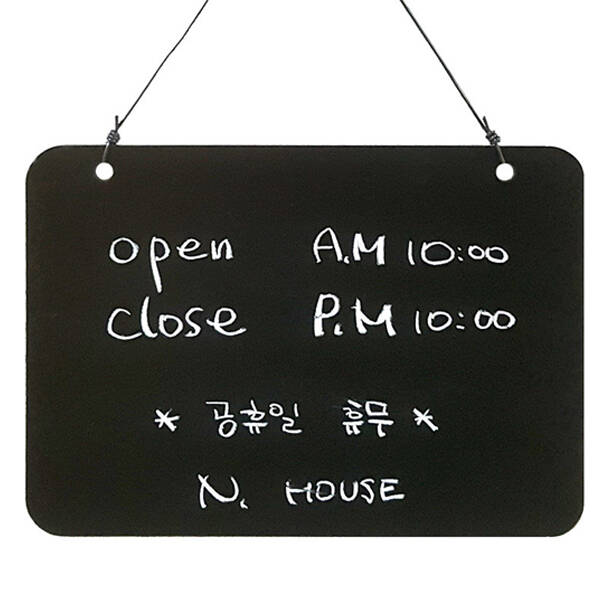 open A.M 10:00
close P.M 10:00
* 공휴일 휴무 *
N. HOUSE